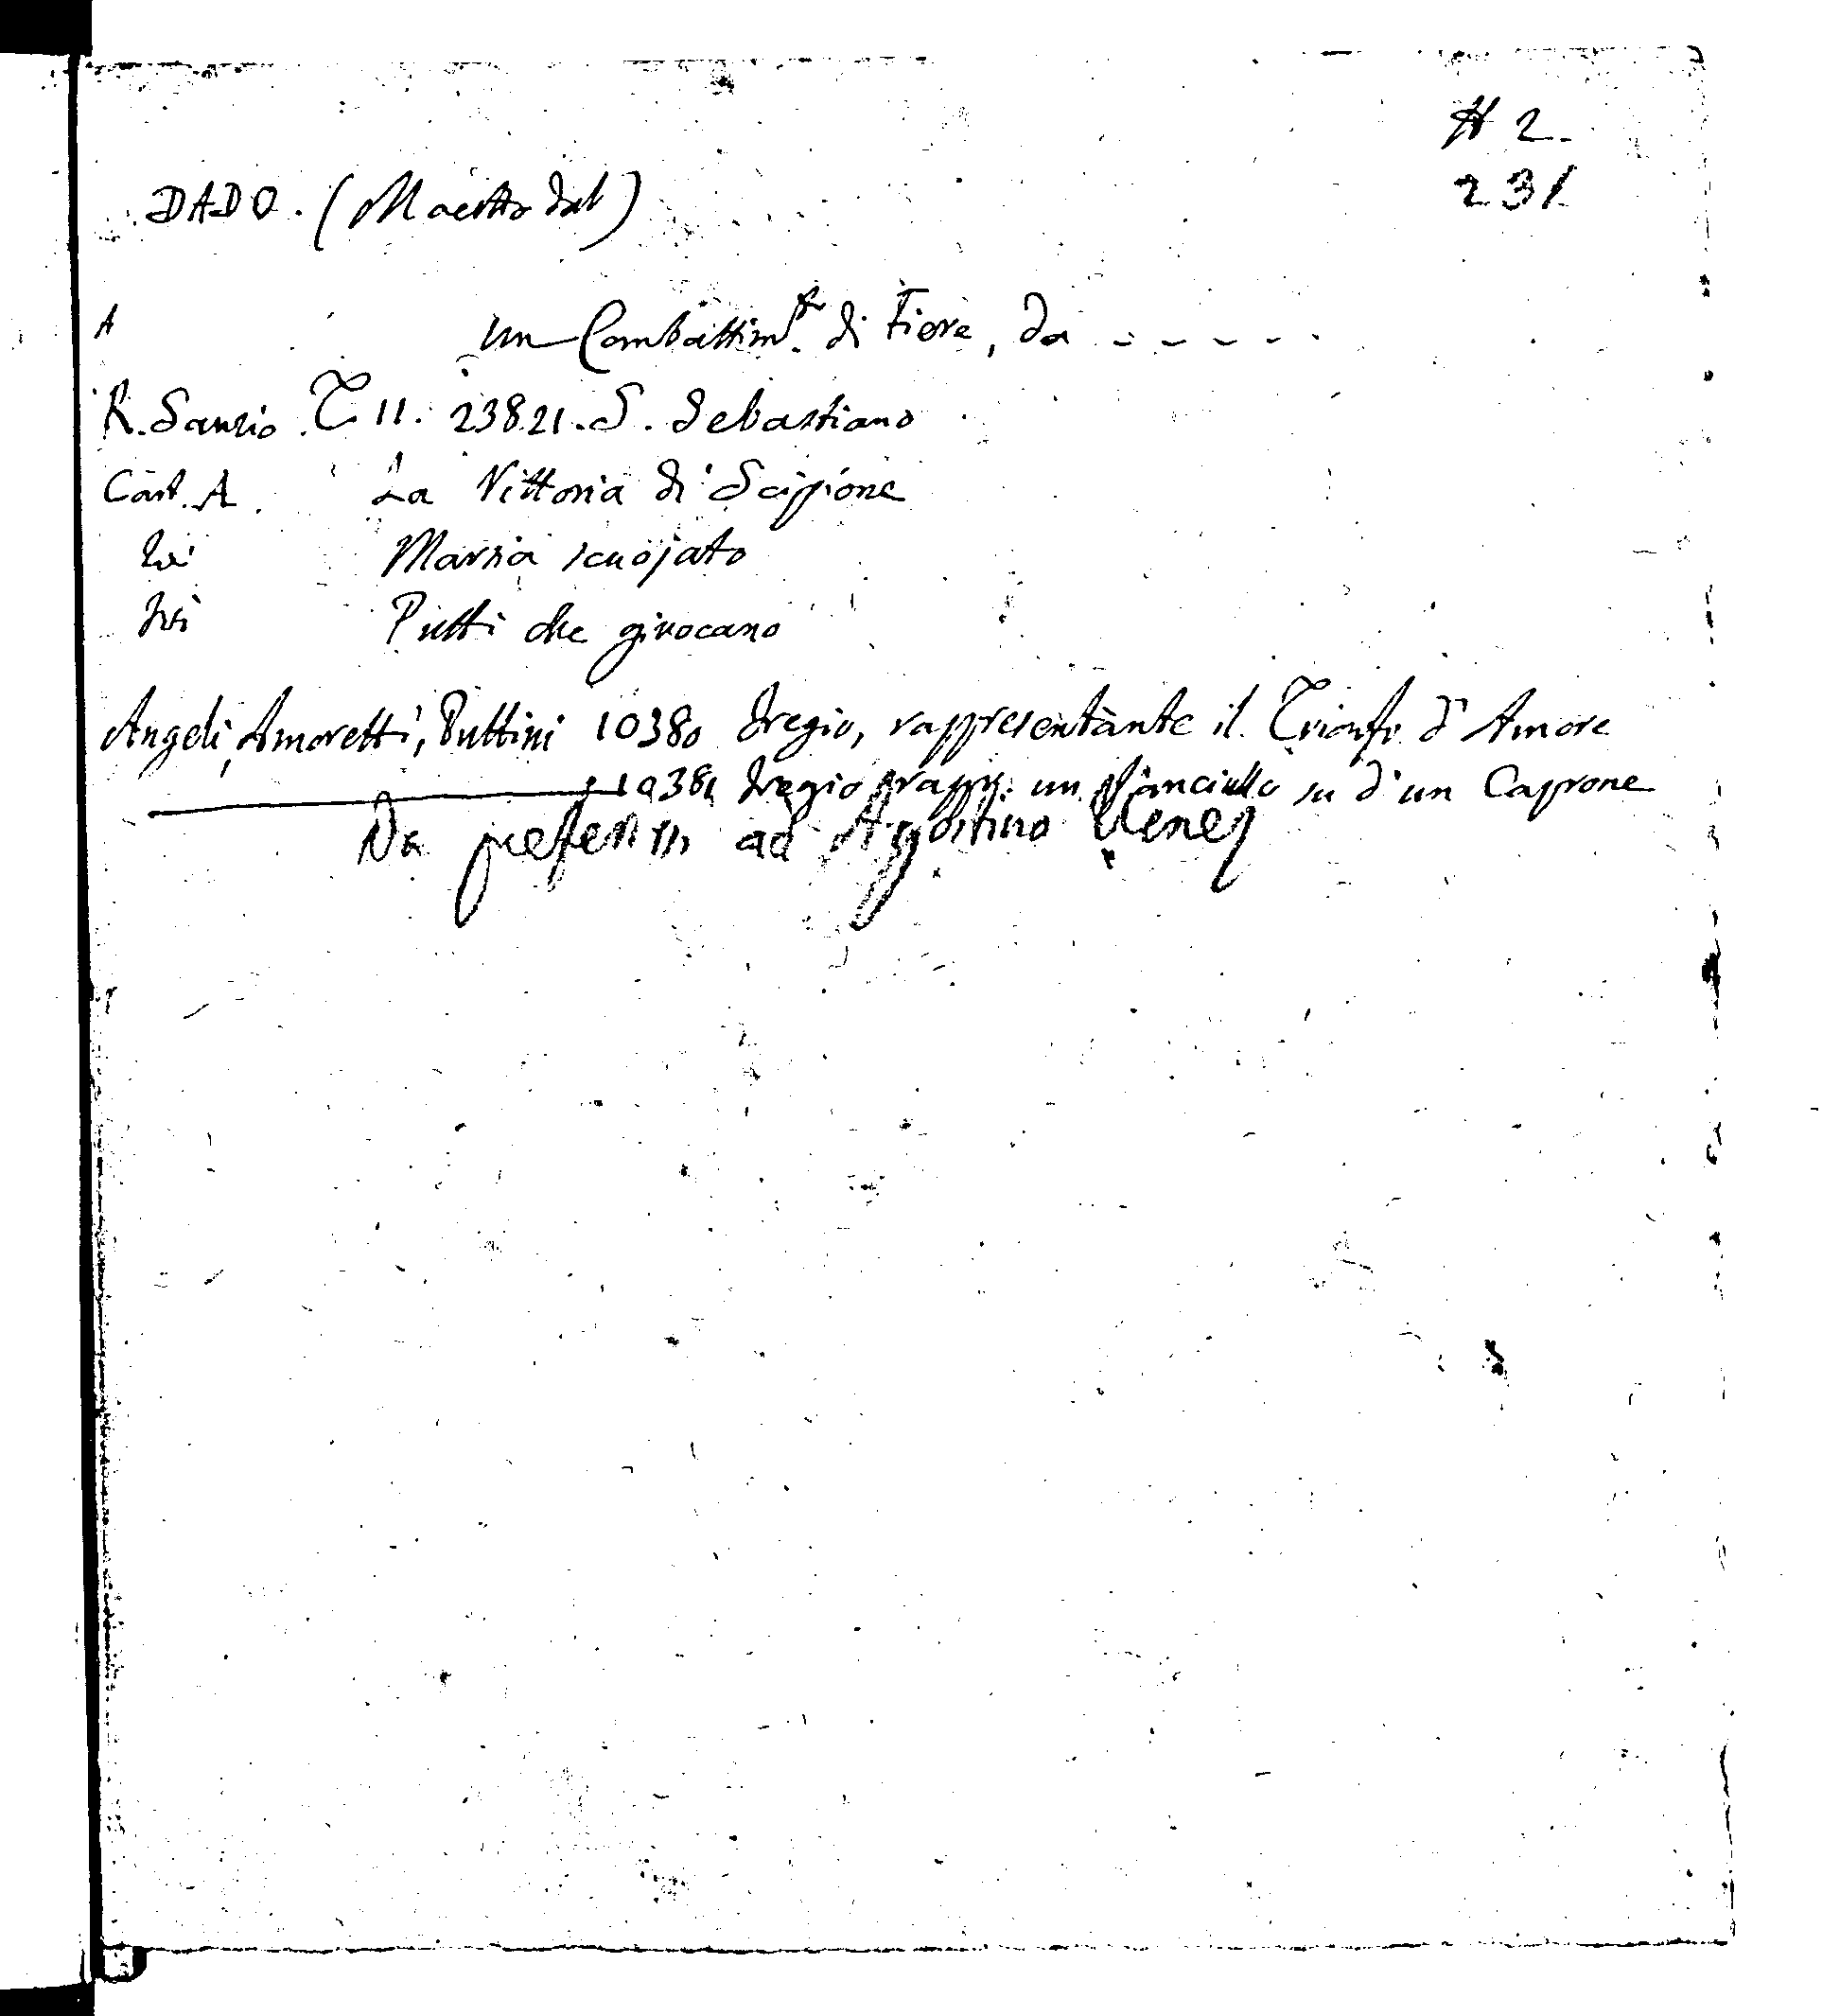 # 2.
231
DADO. (Maestro dal)
A un Combattim.to di Fiere, da - - - - -
R. Sanzio. T 11. 23821. S. Sebastiano
Cart. A. La Vittoria di Scipione
Ivi Marsia scuojato
Ivi Putti che giuocano
Angeli, Amoretti, Puttini 10380 Fregio, rappresentante il Trionfo d'Amore
10381 Fregio, rapp. un Fanciullo su d'un Caprone
Da ad Agostino Venez